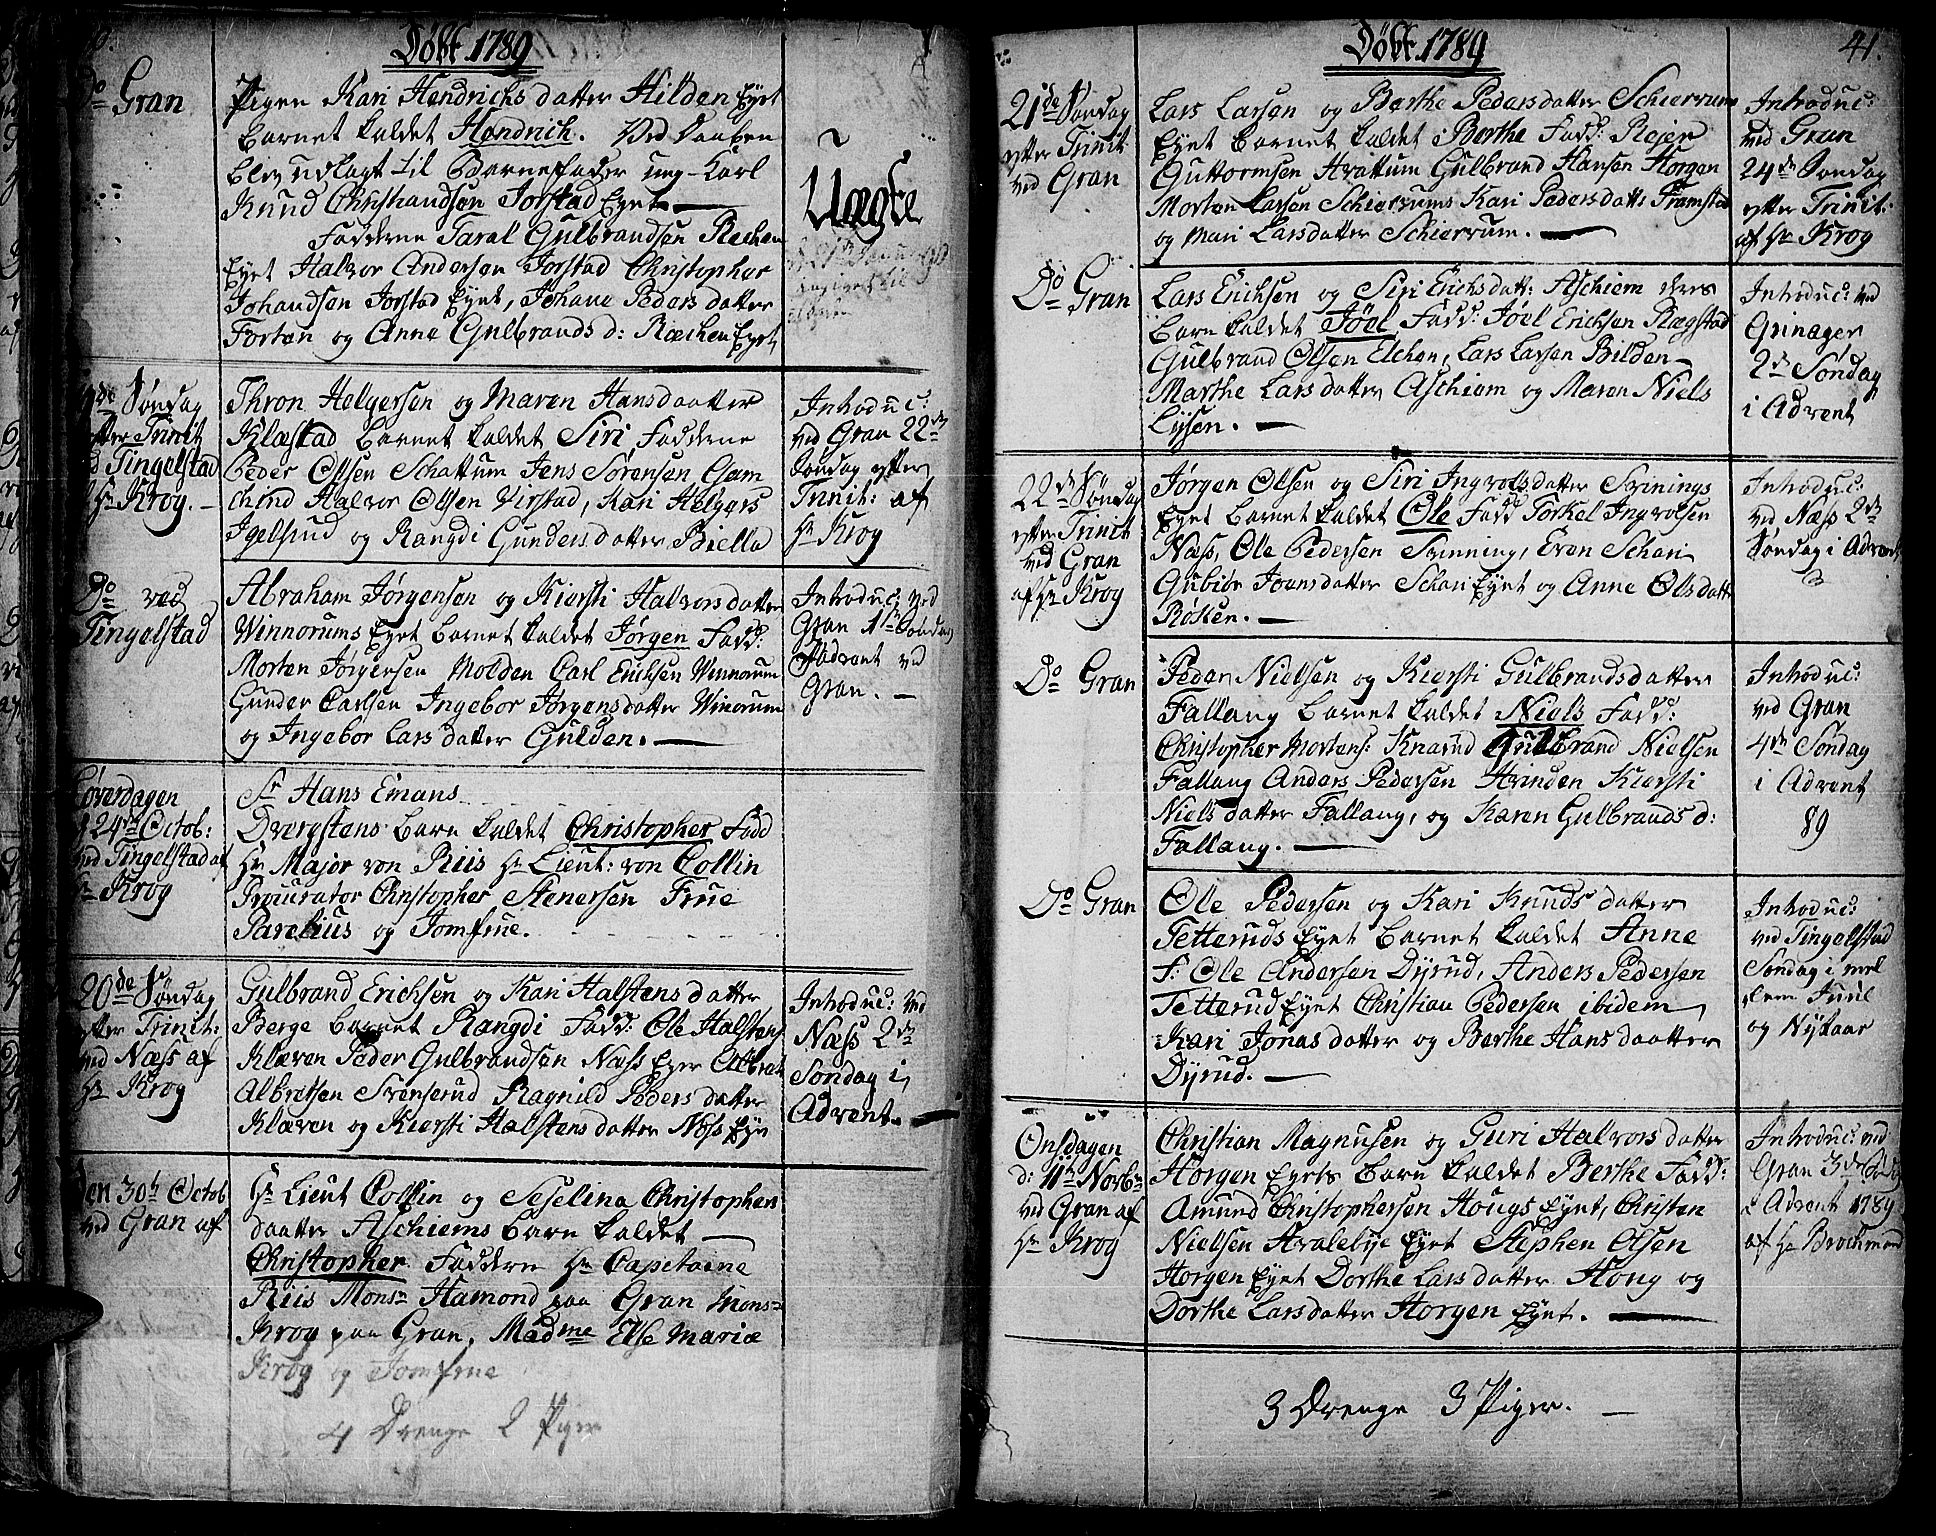 Døbt 1789
Do Gran
Pigen Kari Hendrichs datter Hilden Eyet
Barnet kaldet Hendrich. Ved Daaben
blev udlagt til Barnefader ung-Karl
Knud Christiandsøn Jorstad Eyet
Fadderne Taral Gulbrandsen Ræchen
Eyet Halvor Andersen Jorstad Christopher
Johandsen Jorstad Eyet, Johane Peders datter
Forten og Anne Gulbrands d: Ræchen Eyet
Uægte
Søndag
efter Trinit
Tingelstad
Hr Krog.
Thron Helgersen og Maren Hansdaatter
Klæstad Barnet kaldet Siri Fadderne
Peder Olsen Schattum Jens Sørensen Gam
chind Halvor Olsen Virstad, Kari Helgers
Igelsrud og Rangdi Gunders datter Biella
Introduc:
ved Gran 22de
Søndag efter
Trinit: af
Hr Krog
Do ved
Tingelstad
Abraham Jørgensen og Kiersti Halvors datter
Winnorums Eyet Barnet kaldet Jørgen Fadd:
Morten Jørgensen Molden Carl Erichsen Winnorum
Gunder Carlsen Ingebor Jørgens datter Winorum
og Ingebor Lars datter Gulden.
Introduc: ved
Gran 1te Søndag
i Advent ved
Gran.
Løverdagen
24de Octob:
ved Tingelstad af
Hr Krog
Sr Hans Emans
Dvergstens Barn kaldet Christopher Fadd
Hr Major von Riis Hr Lieut: von Collin
Procurator Christopher Stenersen Frue
Parelius og Jomfrue.
20de Søndag
efter Trinit:
ved Næss af
Hr Krog
Gulbrand Erichsen og Kari Halstens datter
Berge Barnet Rangdi Fadd: Ole Halstens
Klæven Peder Gulbrandsen Næss Eyer Albret
Albretsen Svenserud Ragnild Peders datter
Klæven og Kiersti Halstens datter Næss Eye
Introduc: ved
Næss 2de
Søndag i
Advent.
Den 30te Octob
ved Gran af
Hr Lieut Collin og Seselina Christophers
daatter Aschiems Barn kaldet
Christopher Faddern Hr Capitaene
Riis Monsr Hamond paa Gran Monsr
Krog paa Gran, Madme Else Mariæ
Krog og Jomfrue
4 Drenge 2 Piger
Døbt 1789
41.
21de Søndag
efter Trinit:
ved Gran
Lars Larsen og Berthe Pedersdatter Schierrum
Eyet Barnet kaldet Berthe Fadd: Rejer
Guttormsen Hvattum Gulbrand Hansen Horgen
Morten Larsen Schierrums Kari Pedersdatts Framstad
og Mari Larsdatter Schierrum.
Introduc:
ved Gran
24de Søndag
efter Trinit:
af Hr Krog
Do Gran
Lars Erichsen og Siri Erichsdatt: Aschiem deres
Barn kaldet Jöel Fadd: Jöel Erichsen Rægstad
Gulbrand Olsen Elchen, Lars Larsen Bilden
Marthe Lars datter Aschiem og Maren Niels
Lysen.
Introduc: ved
Grinager
2de Søndag
i Advent
22de Søndag
efter Trinit
ved Gran
af Hr Krog
Jørgen Olsen og Siri Ingvolsdatter Svinings
Eyet Barnet kaldet Ole Fadd Torkel Ingvolsen
Næss, Ole Pedersen Svinning, Even Schari
Gubiör Joensdatter Schari Eyet og Anne Ols datt
Røsten.
Introduc:
ved Næss 2de
Søndag i Advent
Do Gran
Peder Nielsen og Kiersti Gulbrandsdatter
Fallang Barnet kaldet Niels Fadd:
Christopher Mortens: Knarud Gulbrand Nielsen
Fallang Anders Pedersen Hvinden Kiersti
Niels datter Fallang, og Karen Gulbrands d:
Fallang.
Introduc:
ved Gran
4de Søndag
i Advent
89
Do Gran
Ole Pedersen og Kari Knuds datter
Tetteruds Eyet Barnet kaldet Anne
F: Ole Andersen Dyrud, Anders Pedersen
Tetterud Eyet Christian Pedersen ibidem
Kari Jonas datter og Berthe Hans daatter
Dyrud.
Introduc:
ved Tingelstad
Søndag i mel
lem Juul
og Nytaar
Onsdagen
d: 11te Novbr
ved Gran af
Hr Krog
Christian Magnusen og Guri Halvors datter
Horgen Eyets Barn kaldet Berthe Fadd:
Amund Christophersen Hougs Eyet, Christen
Nielsen Hvalebye Eyet Stephen Olsen
Horgen Eyet Dorthe Lars datter Houg og
Dorthe Larsdatter Horgen Eyet.
Introduc: ved
Gran 3de Søndag
i Advent 1789
af Hr Brochmand
3 Drenge 3 Piger.